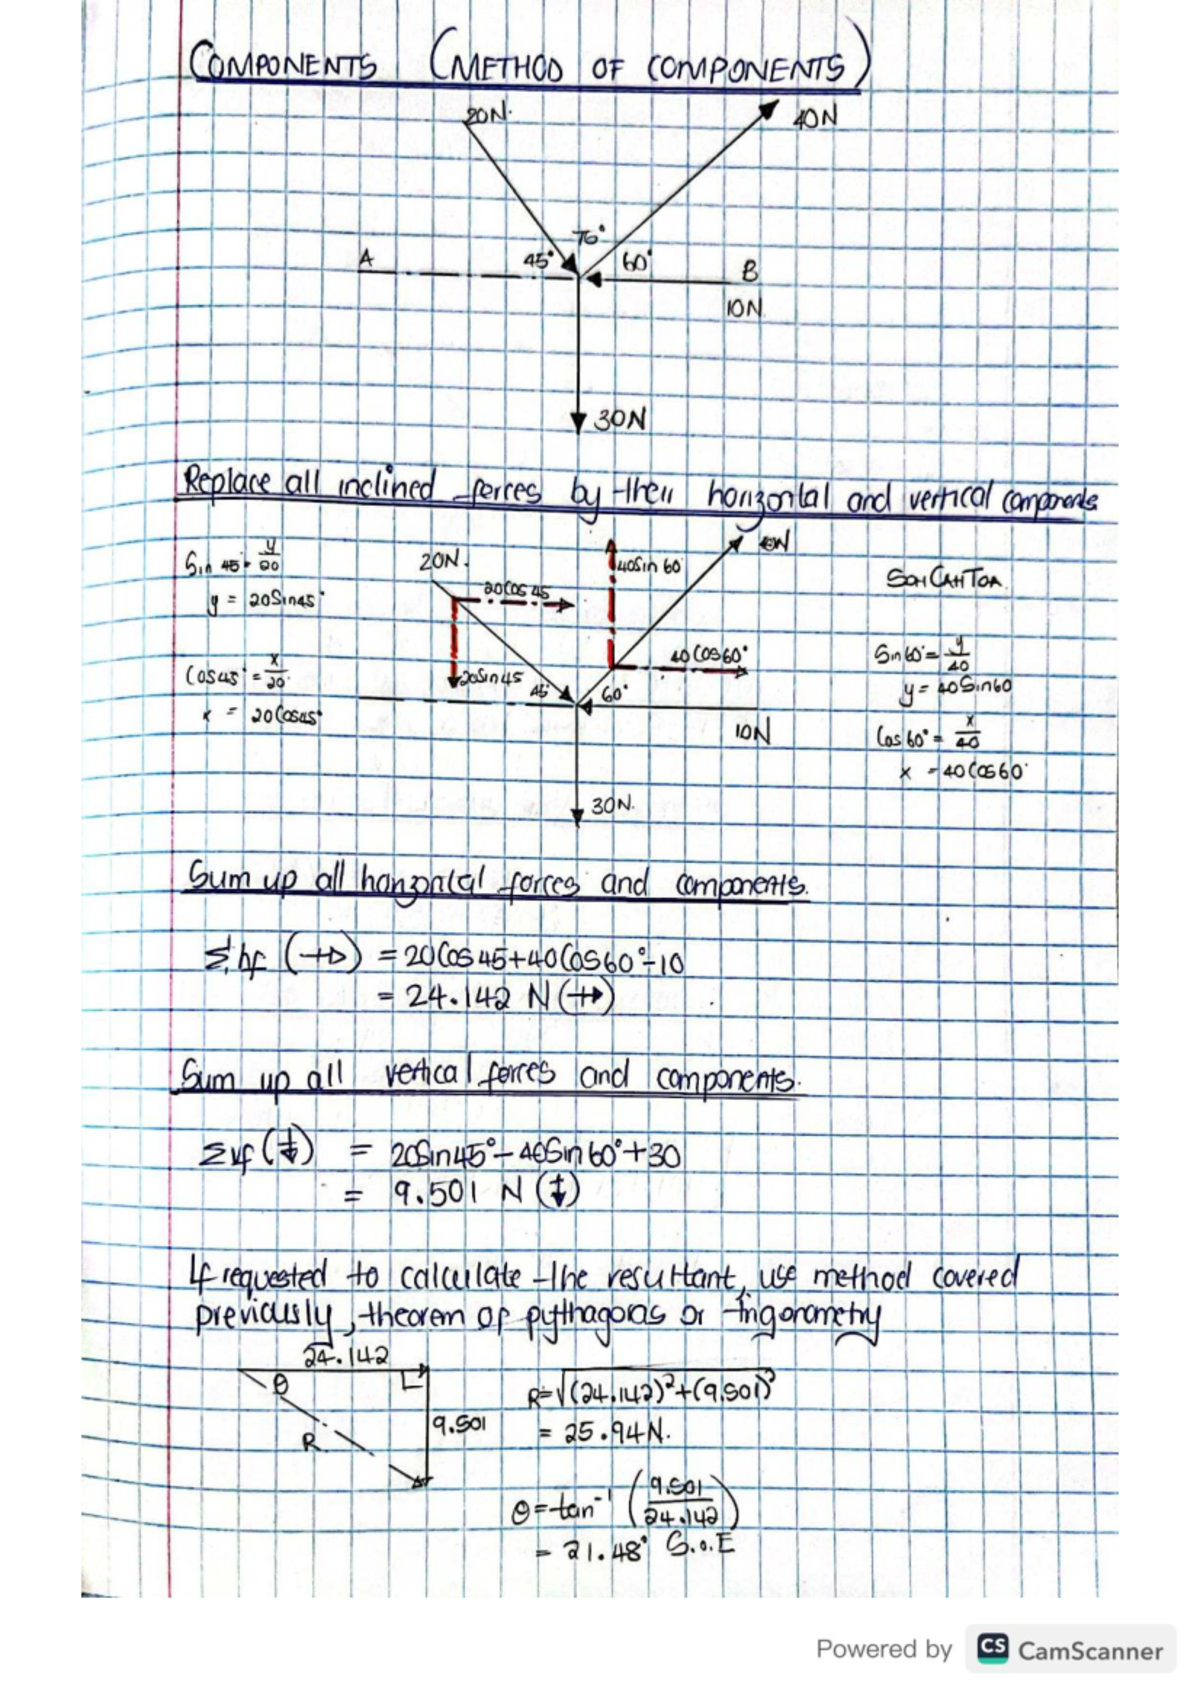 COMPONENTS (METHOD OF COMPONENTS)
20N.
40N
75°
A
45°
60°
B
10N
30N
Replace all inclined forces by their horizontal and vertical components
Sin 45 = y/20
y = 20Sin45°
Cos45° = x/20
x = 20Cos45°
20N.
20Cos 45
20Sin45
45°
40Sin 60°
40N
40Cos60°
60°
10N
30N.
SOH CAH TOA.
Sin60° = y/40
y = 40Sin60
Cos 60° = x/40
x = 40Cos60°
Sum up all horizontal forces and components.
Σhf (→) = 20Cos45+40Cos60°-10
= 24.142 N (→)
Sum up all vertical forces and components.
Σvf (↓) = 20Sin45° - 40Sin60° + 30
= 9.501 N (↓)
If requested to calculate the resultant, use method covered
previously, theorem of pythagoras or trigonometry
24.142
θ
R
9.501
R=√(24.142)²+(9.501)²
= 25.94N.
θ=tan⁻¹ (9.501/24.142)
= 21.48° S.o.E
Powered by CS CamScanner